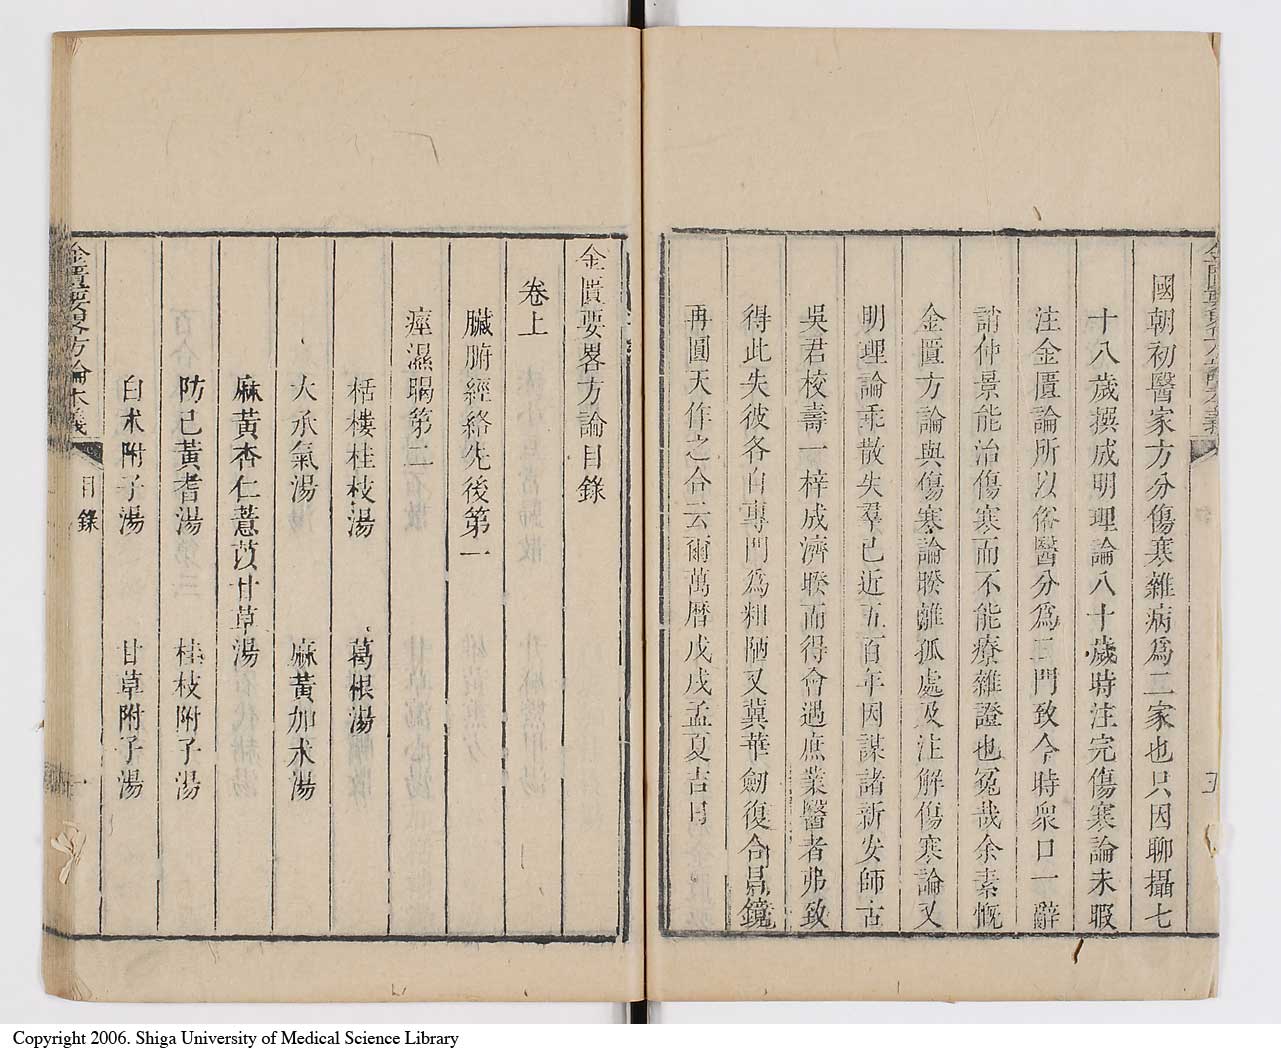 國朝初醫家方分傷寒雜病爲二家也只因聊攝七
十八歲撰成明理論八十歲時注完傷寒論未暇
注金匱論所以俗醫分爲二門致令時衆口一辭
誚仲景能治傷寒而不能療雜證也冤哉余素慨
金匱方論與傷寒論暌離孤處及注解傷寒論又
明理論乖散失羣已近五百年因謀諸新安師古
吳君校壽一梓成濟暌而得會遇庶業醫者弗致
得此失彼各自專門爲粗陋又冀華劒復合昌鏡
再圓天作之合云爾萬曆戊戌孟夏吉日
金匱要畧方論目錄
卷上
臟腑經絡先後第一
痙濕暍第二
栝樓桂枝湯 葛根湯
大承氣湯 麻黃加朮湯
麻黃杏仁薏苡甘草湯
防己黃耆湯 桂枝附子湯
白朮附子湯 甘草附子湯
金匱要畧方論本義 目錄 一
Copyright 2006. Shiga University of Medical Science Library